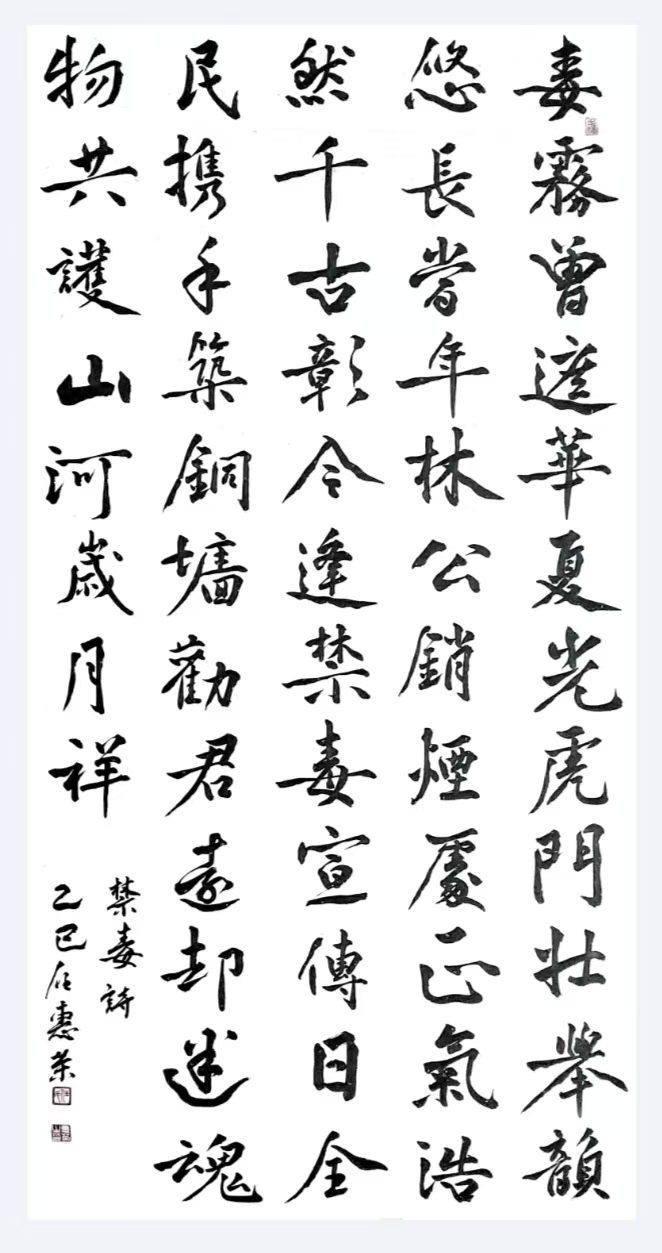 毒霧曾遮華夏光虎門壯舉韻
悠長當年林公銷煙處正氣浩
然千古彰今逢禁毒宣傳日全
民携手築銅墻勸君遠却迷魂
物共護山河歲月祥
禁毒詩
乙巳石惠荣